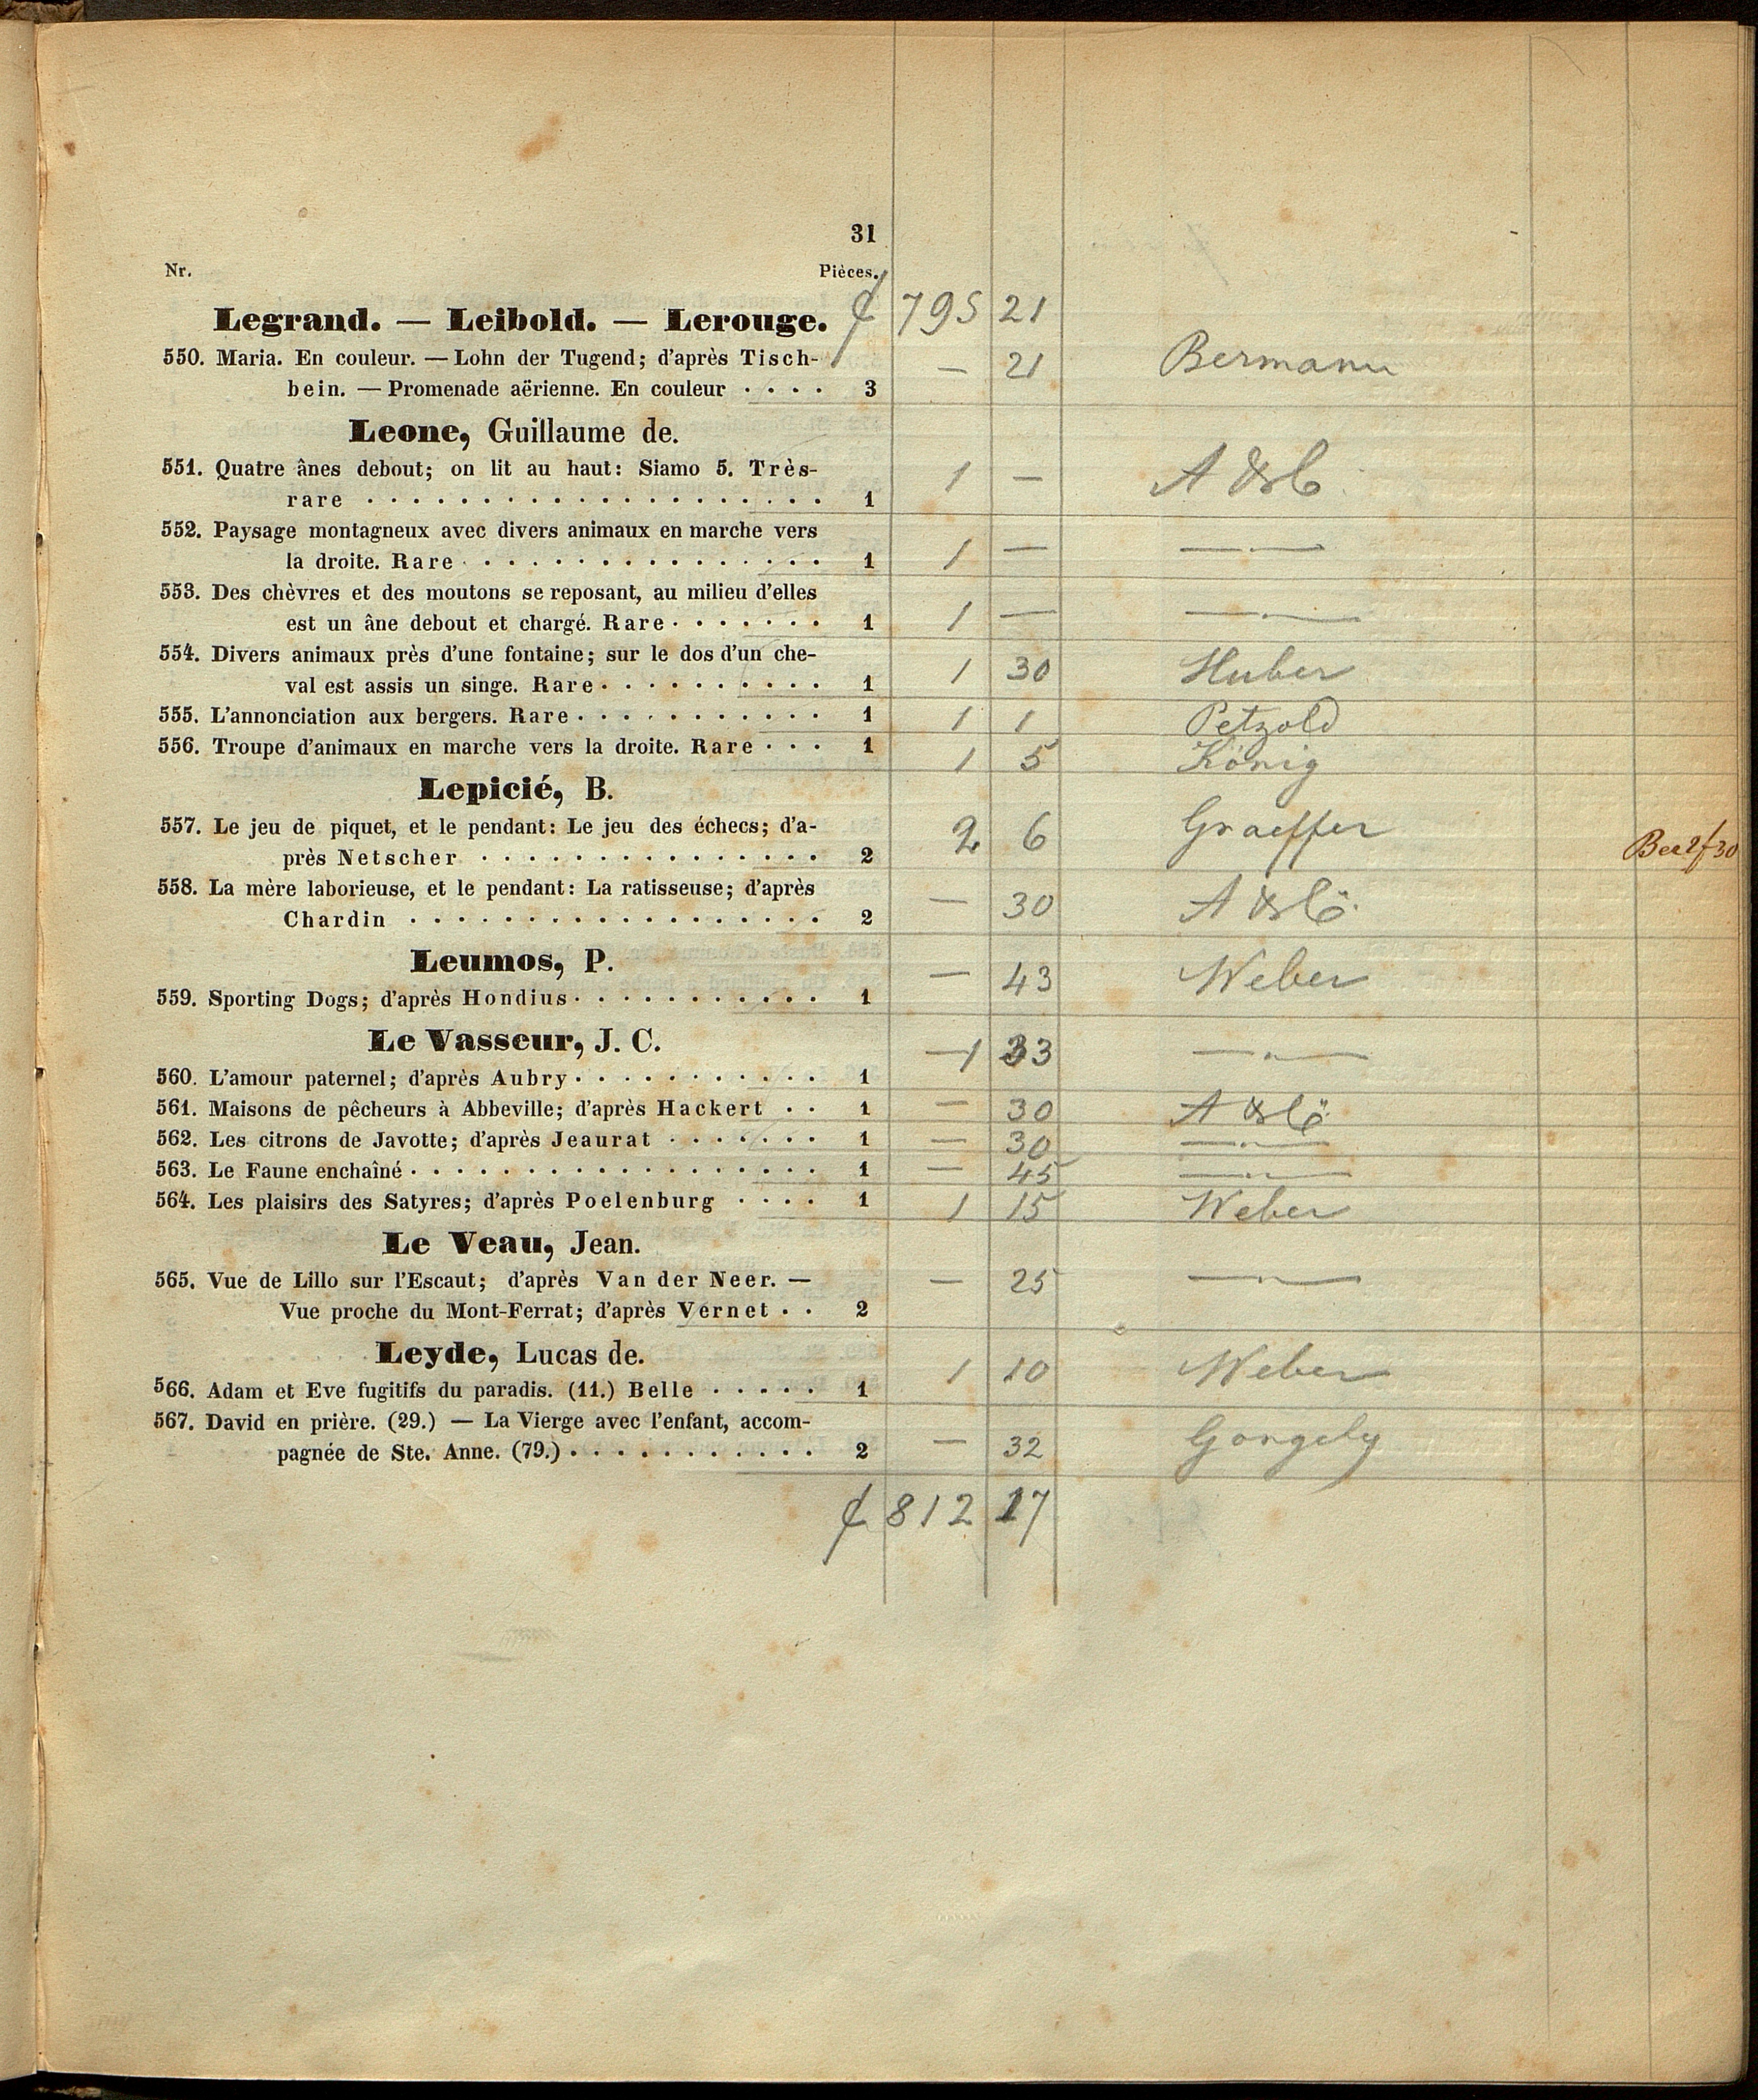 31
Nr. Pièces.
Legrand. — Leibold. — Lerouge. 795 21
550. Maria. En couleur. — Lohn der Tugend; d'après Tisch-
bein. — Promenade aërienne. En couleur · · · · 3 — 21 Bermann
Leone, Guillaume de.
551. Quatre ânes debout; on lit au haut: Siamo 5. Très-
rare · · · · 1 1 —
552. Paysage montagneux avec divers animaux en marche vers
la droite. Rare · · · · 1 1 — — · —
553. Des chèvres et des moutons se reposant, au milieu d'elles
est un âne debout et chargé. Rare · · · · 1 1 — — · —
554. Divers animaux près d'une fontaine; sur le dos d'un che-
val est assis un singe. Rare · · · · 1 1 30 Huber
555. L'annonciation aux bergers. Rare · · · · 1 1 1 Petzold
556. Troupe d'animaux en marche vers la droite. Rare · · · 1 1 5 König
Lepicié, B.
557. Le jeu de piquet, et le pendant: Le jeu des échecs; d'a-
près Netscher · · · · 2 2 6 Graeffer
558. La mère laborieuse, et le pendant: La ratisseuse; d'après
Chardin · · · · 2 — 30
Leumos, P.
559. Sporting Dogs; d'après Hondius · · · · 1 — 43 Weber
Le Vasseur, J. C.
560. L'amour paternel; d'après Aubry · · · · 1 1 33 — · —
561. Maisons de pêcheurs à Abbeville; d'après Hackert · · 1 — 30
562. Les citrons de Javotte; d'après Jeaurat · · · · 1 — 30 — · —
563. Le Faune enchaîné · · · · 1 — 45 — · —
564. Les plaisirs des Satyres; d'après Poelenburg · · · · 1 1 15 Weber
Le Veau, Jean.
565. Vue de Lillo sur l'Escaut; d'après Van der Neer. —
Vue proche du Mont-Ferrat; d'après Vernet · · 2 — 25 — · —
Leyde, Lucas de.
566. Adam et Eve fugitifs du paradis. (11.) Belle · · · · · 1 1 10 Weber
567. David en prière. (29.) — La Vierge avec l'enfant, accom-
pagnée de Ste. Anne. (79.) · · · · 2 — 32
812 17